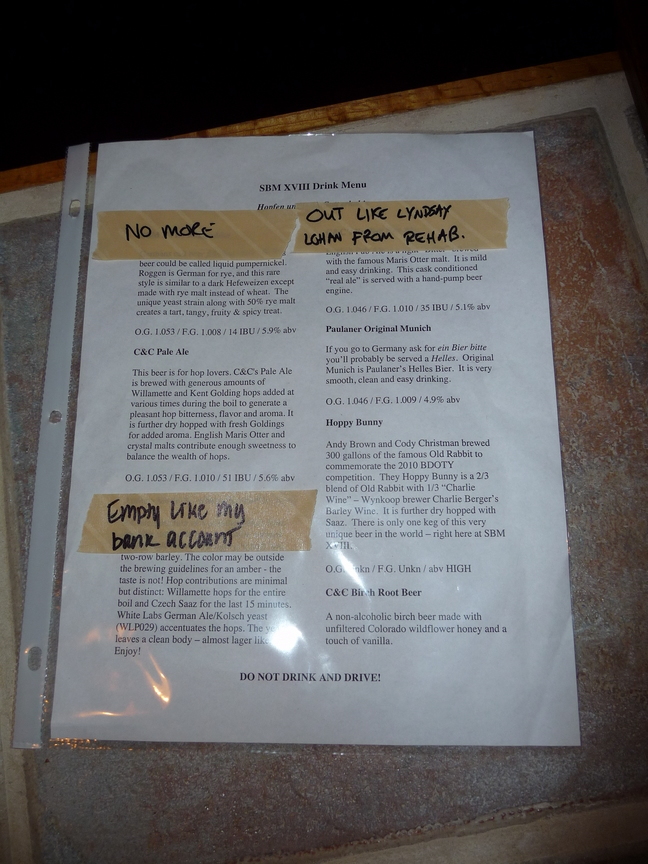 SBM XVIII Drink Menu
Hopfen un
NO MORE
beer could be called liquid pumpernickel.
Roggen is German for rye, and this rare
style is similar to a dark Hefeweizen except
made with rye malt instead of wheat. The
unique yeast strain along with 50% rye malt
creates a tart, tangy, fruity & spicy treat.
O.G. 1.053 / F.G. 1.008 / 14 IBU / 5.9% abv
C&C Pale Ale
This beer is for hop lovers. C&C's Pale Ale
is brewed with generous amounts of
Willamette and Kent Golding hops added at
various times during the boil to generate a
pleasant hop bitterness, flavor and aroma. It
is further dry hopped with fresh Goldings
for added aroma. English Maris Otter and
crystal malts contribute enough sweetness to
balance the wealth of hops.
O.G. 1.053 / F.G. 1.010 / 51 IBU / 5.6% abv
Empty like my
bank account
two-row barley. The color may be outside
the brewing guidelines for an amber - the
taste is not! Hop contributions are minimal
but distinct: Willamette hops for the entire
boil and Czech Saaz for the last 15 minutes.
White Labs German Ale/Kolsch yeast
(WLP029) accentuates the hops. The
leaves a clean body – almost lager
Enjoy!
OUT LIKE LYNDSAY
LOHAN FROM REHAB.
with the famous Maris Otter malt. It is mild
and easy drinking. This cask conditioned
"real ale" is served with a hand-pump beer
engine.
O.G. 1.046 / F.G. 1.010 / 35 IBU / 5.1% abv
Paulaner Original Munich
If you go to Germany ask for ein Bier bitte
you'll probably be served a Helles. Original
Munich is Paulaner's Helles Bier. It is very
smooth, clean and easy drinking.
O.G. 1.046 / F.G. 1.009 / 4.9% abv
Hoppy Bunny
Andy Brown and Cody Christman brewed
300 gallons of the famous Old Rabbit to
commemorate the 2010 BDOTY
competition. They Hoppy Bunny is a 2/3
blend of Old Rabbit with 1/3 "Charlie
Wine" – Wynkoop brewer Charlie Berger's
Barley Wine. It is further dry hopped with
Saaz. There is only one keg of this very
unique beer in the world – right here at SBM
XVIII.
O.G. Unkn / F.G. Unkn / abv HIGH
C&C Birch Root Beer
A non-alcoholic birch beer made with
unfiltered Colorado wildflower honey and a
touch of vanilla.
DO NOT DRINK AND DRIVE!